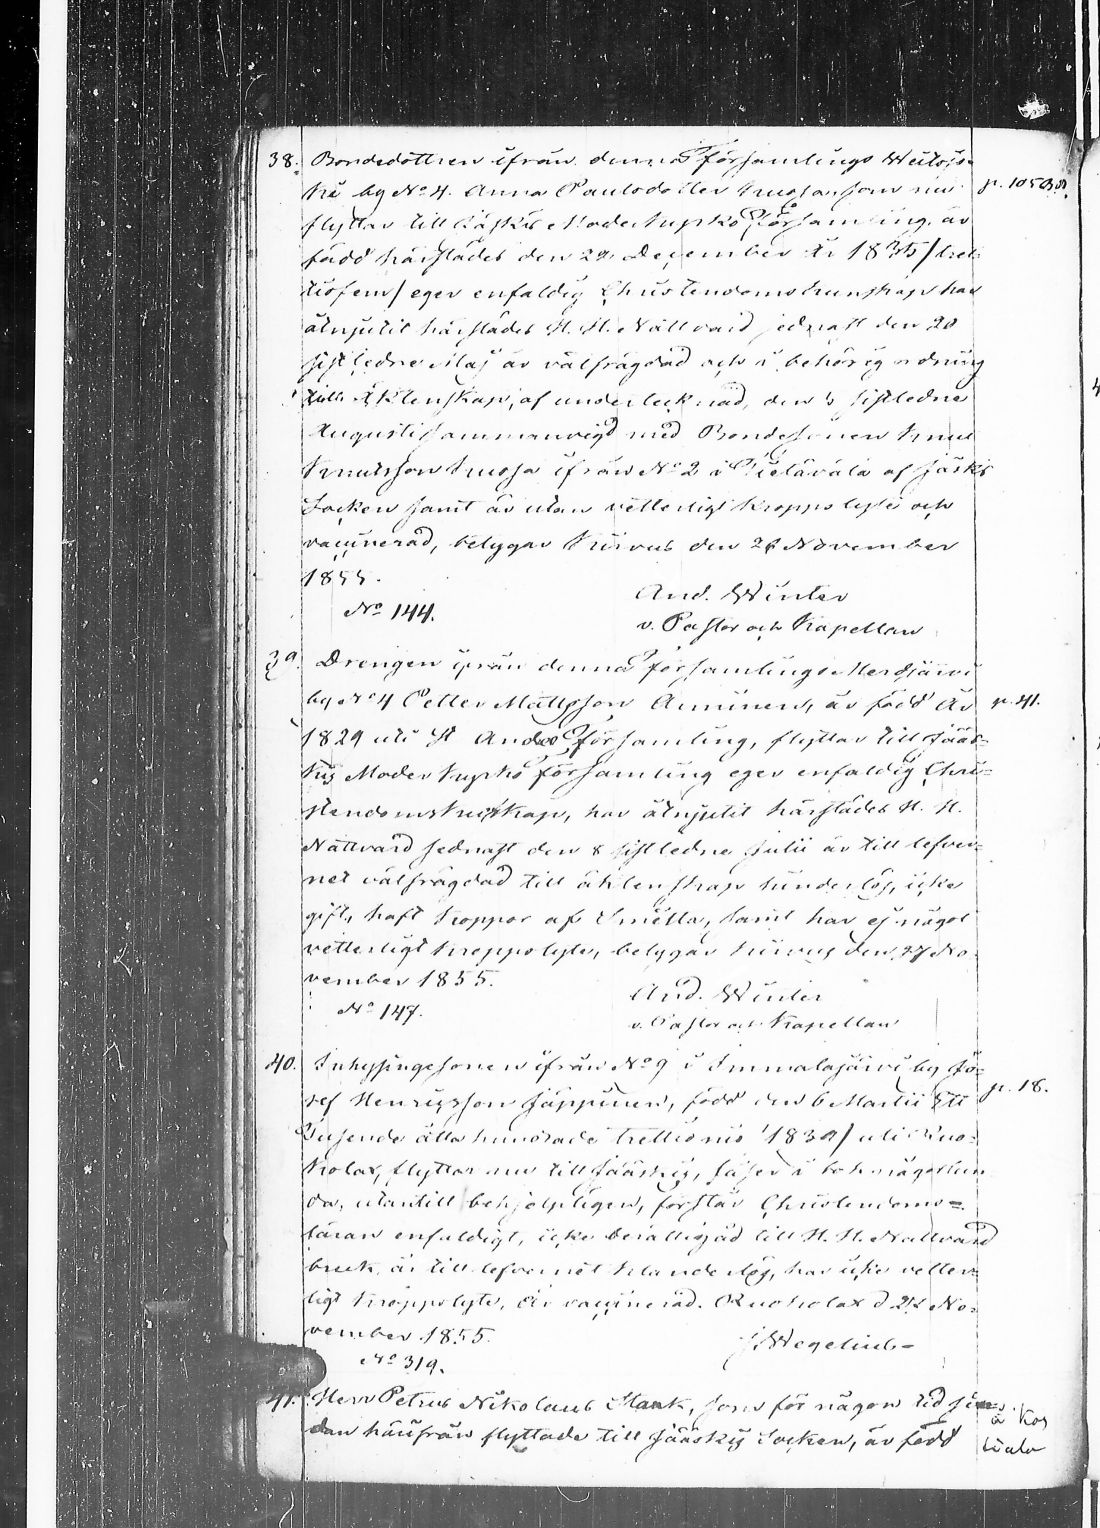 38. Bondedottren ifrån denna Församlings Weitojs-
ki by No 4. Anna Paulsdotter Kuosa, som nu p. 1050.
flyttar till Jäskis Moderkyrko Församling, är
född härstädes den 29 December År 1835/tret-
tiofem/ eger enfaldig Christendomskunskap har
åtnjutit härstädes H. H. Nattvard sednast den 20
sistledne Maj är välfrägdad och i behörig ordning
till Äktenskap, af undertecknad, den sistledne
Augusti sammanvigd med Bondesonen Knut
Knutsson Kuosa ifrån No 2 i Pietävälä af Jäskis
Socken samt är utan vetterligt kroppslyte och
vaccinerad, betygar Kirvus den 26 November
1855. And. Winter
No 144. v. Pastor och Kapellan
39. Drengen ifrån denna Församlings Merdjärvi
by No 4 Petter Mattsson Arminen, är född År p. 41.
1829 uti St Andreæ Församling, flyttar till Jääs-
kis Moderkyrko Församling eger enfaldig Chri-
stendomskunskap, har åtnjutit härstädes H. H.
Nattvard sednast den 8 sistledne Julii är till lefver-
net välfrägdad till äktenskap hinderlös, icke
gift, haft koppor af Smitta, samt har ej något
vetterligt kroppslyte, betygar Kirvus den 27 No-
vember 1855. And. Winter
No 147. v. Pastor och Kapellan
40. Inhysingesonen ifrån No 9 i Immalajärvi by Jo-
sef Henricsson Jäppinen, född den 6 Martii Ett p. 18.
Tusende åtta hundrade trettionio 1839/ uti Ruo-
kolax, flyttar nu till Jääskis, läser i bok någorlun-
da, utantill behjelpligen, förstår Christendoms-
läran enfaldigt, icke berättigad till H. H. Nattvard
bruk, är till lefvernet klanderlös, har icke vetter-
ligt kroppslyte, är vaccinerad. Ruokolax d 22 No-
vember 1855. J. Wegelius
No 319.
41. Herr Petrus Nikolaus Stank, som för någon tid se-
dan härifrån flyttade till Jääskis Socken, är född